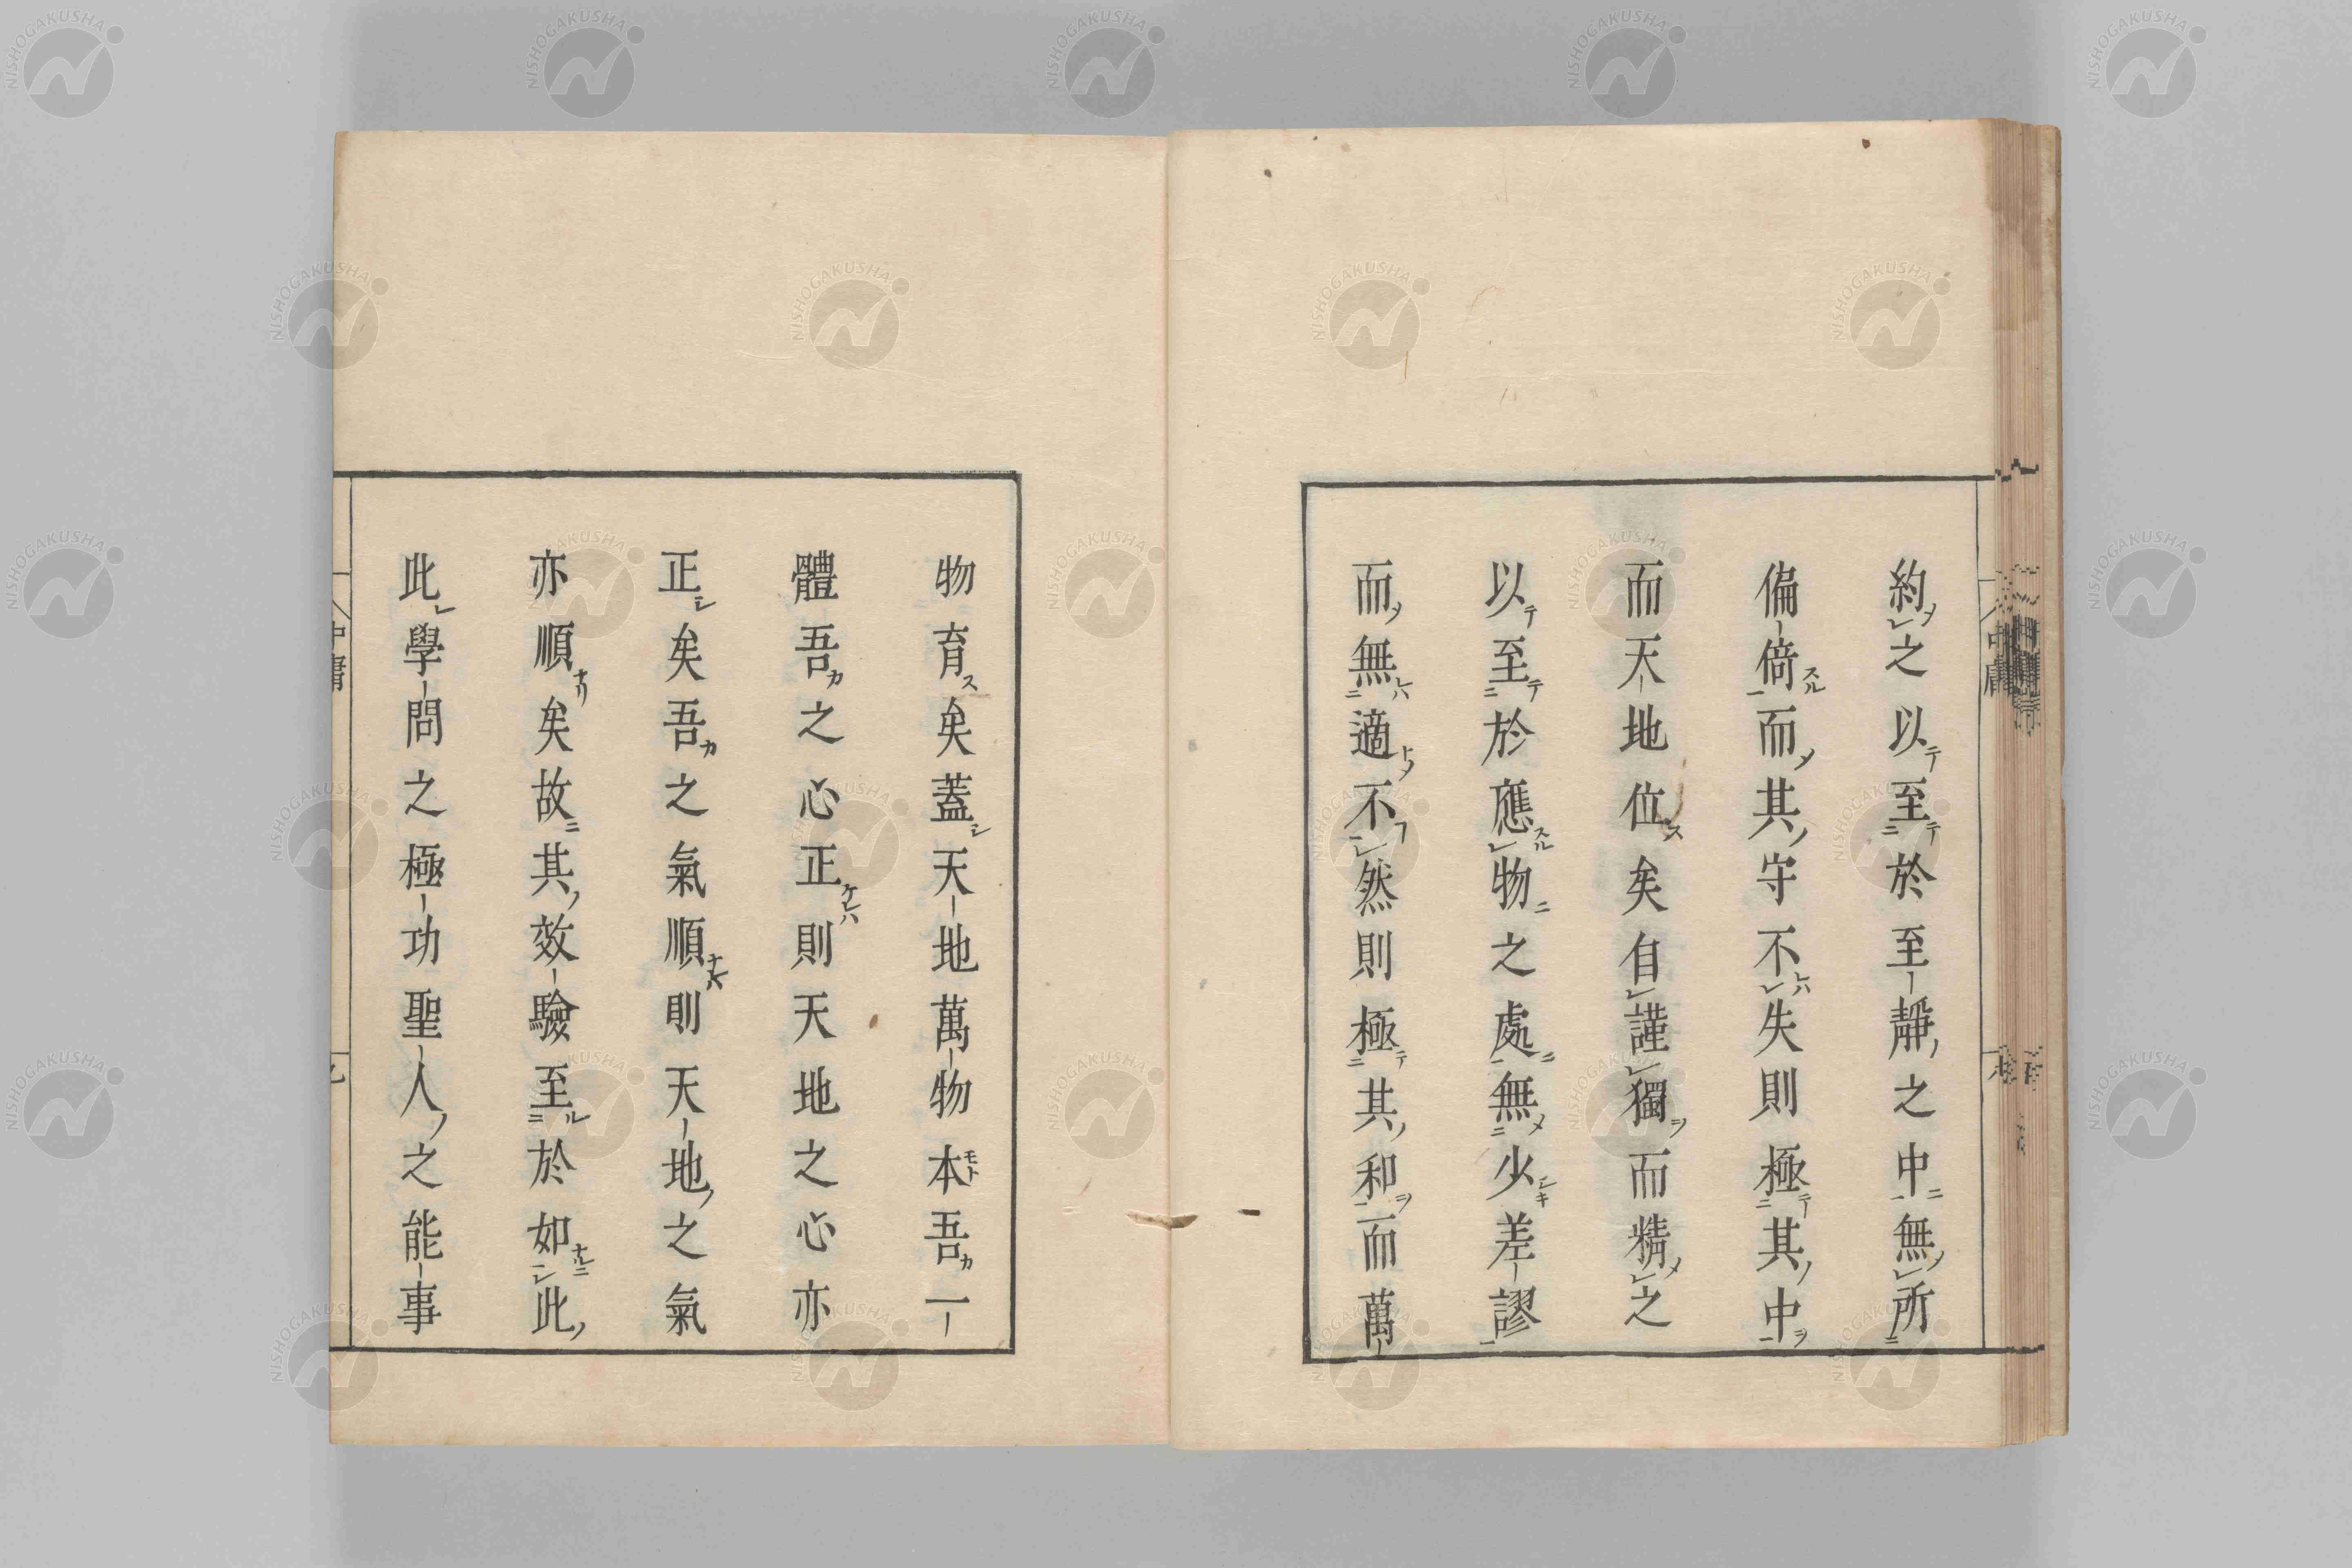 約之以至於至靜之中無所
偏倚而其守不失則極其中
而天地位矣自謹獨而精之
以至於應物之處無少差謬
而無適不然則極其和而萬
物育矣蓋天地萬物本吾一
體吾之心正則天地之心亦
正矣吾之氣順則天地之氣
亦順矣故其效驗至於如此
此學問之極功聖人之能事
中庸
NISHOGAKUSHA